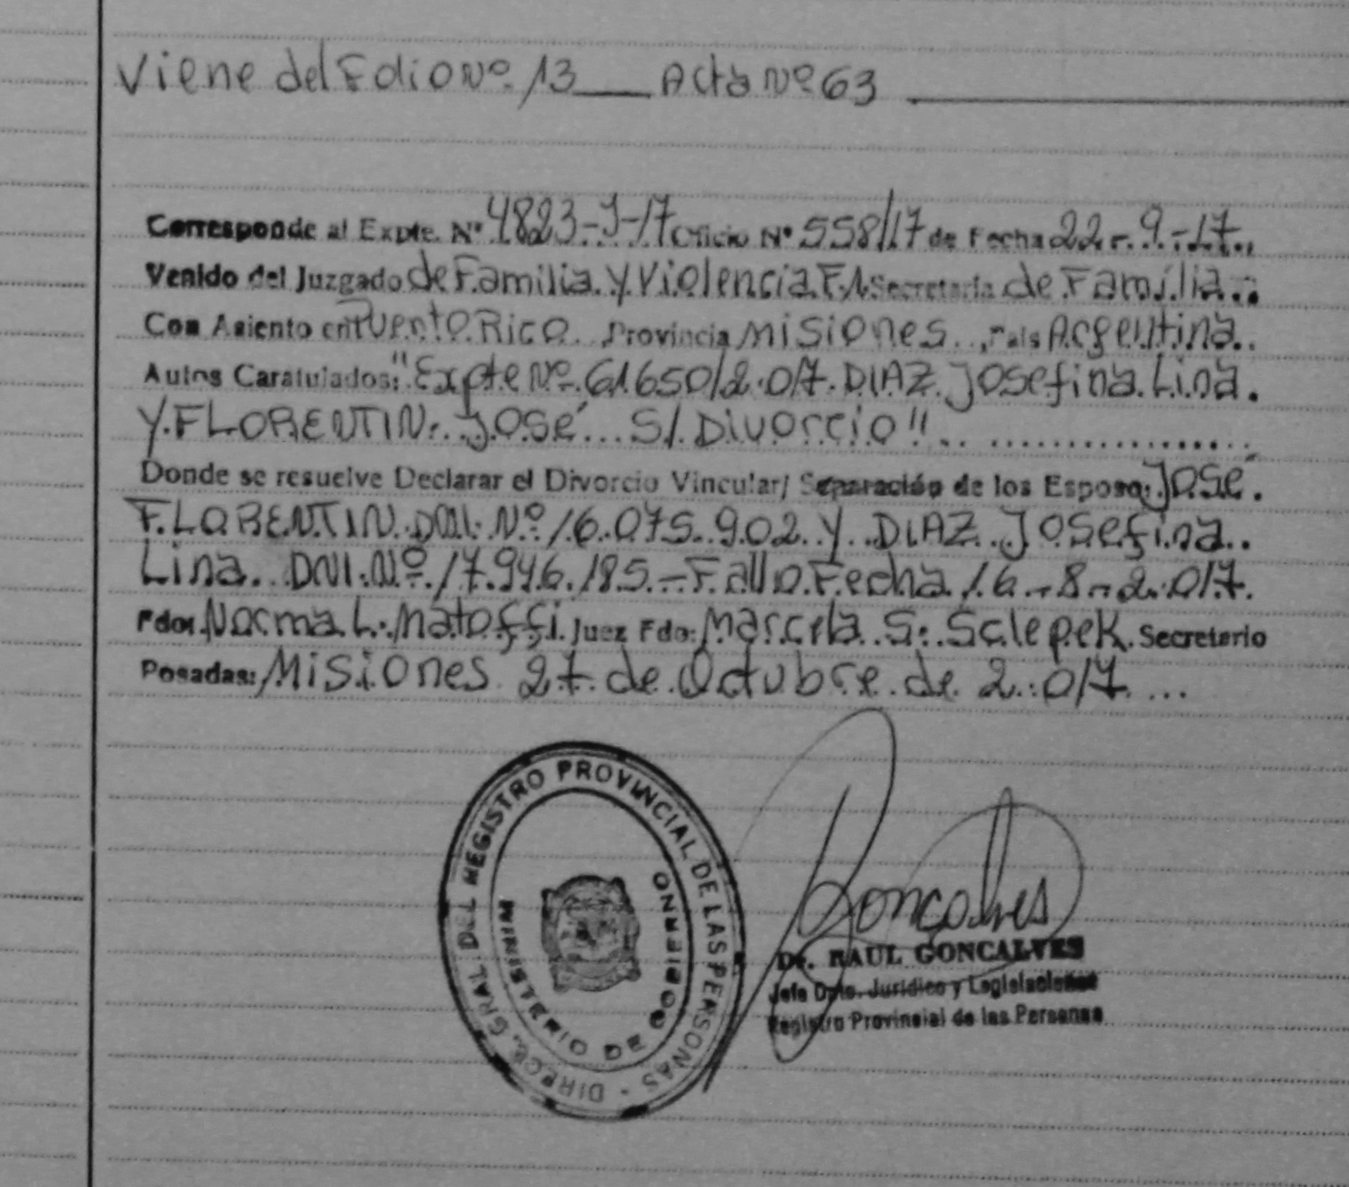 Viene del Folio Nº 13 ___ Acta Nº 63
Corresponde al Expte. Nº 4823-J-17 Oficio Nº 558/17 de Fecha 22-9-17
Venido del Juzgado de Familia y Violencia F.1 Secretaría de Familia
Con Asiento en Puerto Rico Provincia Misiones, País Argentina
Autos Caratulados: "Expte Nº 61650/2017 DIAZ Josefina Lina
Y FLORENTIN José S/ Divorcio"
Donde se resuelve Declarar el Divorcio Vincular/ Separación de los Esposos: José
FLORENTIN DNI Nº 16.075.902 Y DIAZ Josefina
Lina DNI Nº 17.946.185 - Fallo Fecha 16-8-2017
Fdo: Norma L. Matoffi Juez Fdo: Marcela S. Sclepek Secretario
Posadas: Misiones 27 de Octubre de 2017
DIRECC. GRAL. DEL REGISTRO PROVINCIAL DE LAS PERSONAS
MINISTERIO DE GOBIERNO
Goncalves
Dr. RAUL GONCALVES
Jefe Dpto. Jurídico y Legislaciones
Registro Provincial de las Personas